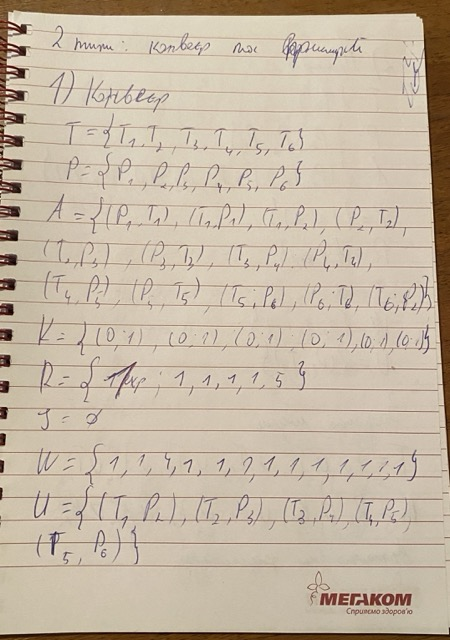 2 типи: конвеєр та
1) Конвеєр
T = {T₁, T₂, T₃, T₄, T₅, T₆}
P = {P₁, P₂, P₃, P₄, P₅, P₆}
A = {(P₁, T₁), (T₁, P₁), (T₁, P₂), (P₂, T₂),
(T₂, P₃), (P₃, T₃), (T₃, P₄), (P₄, T₄),
(T₄, P₅), (P₅, T₅), (T₅; P₆), (P₆; T₆), (T₆; P₂)}
K = {(0; 1), (0; 1), (0; 1), (0; 1), (0; 1), (0; 1)}
R = { ; 1, 1, 1, 1, 5}
= ∅
W = {1, 1, 4, 1, 1, 1, 1, 1, 1, 1, 1, 1}
U = {(T₁, P₂), (T₂, P₃), (T₃, P₄), (T₄, P₅),
(T₅, P₆)}
МЕГАКОМ
Сприяємо здоров'ю